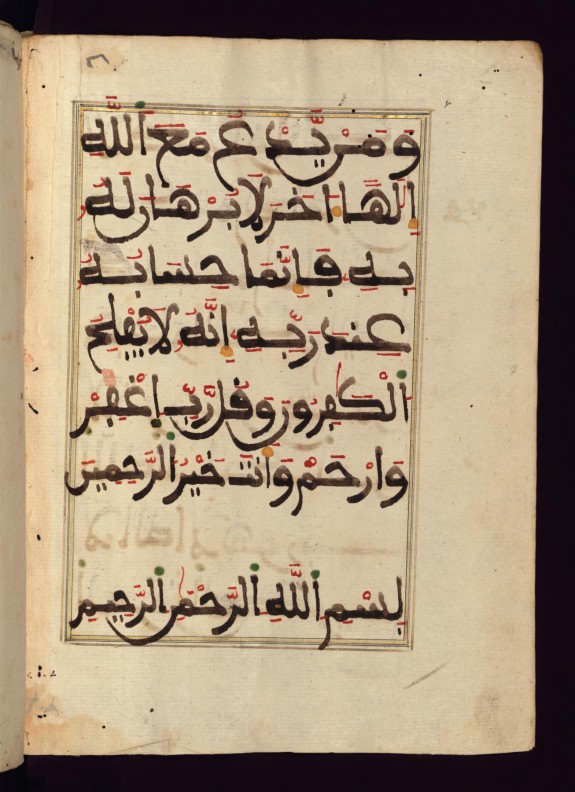 وَمَنْ يَّدْعُ مَعَ اَللَّهِ
إِلَٰهًا اٰخَرَ لَا بُرْهَٰنَ لَهُۥ
بِهِۦ فَإِنَّمَا حِسَابُهُۥ
عِندَ رَبِّهِۦٓ إِنَّهُۥ لَا يُفْلِحُ
اُلْكَٰفِرُونَ وَقُل رَّبِّ اِغْفِرْ
وَارْحَمْ وَأَنتَ خَيْرُ الرَّٰحِمِينَ
بِسْمِ اِللَّهِ اِلرَّحْمَٰنِ اِلرَّحِيمِ